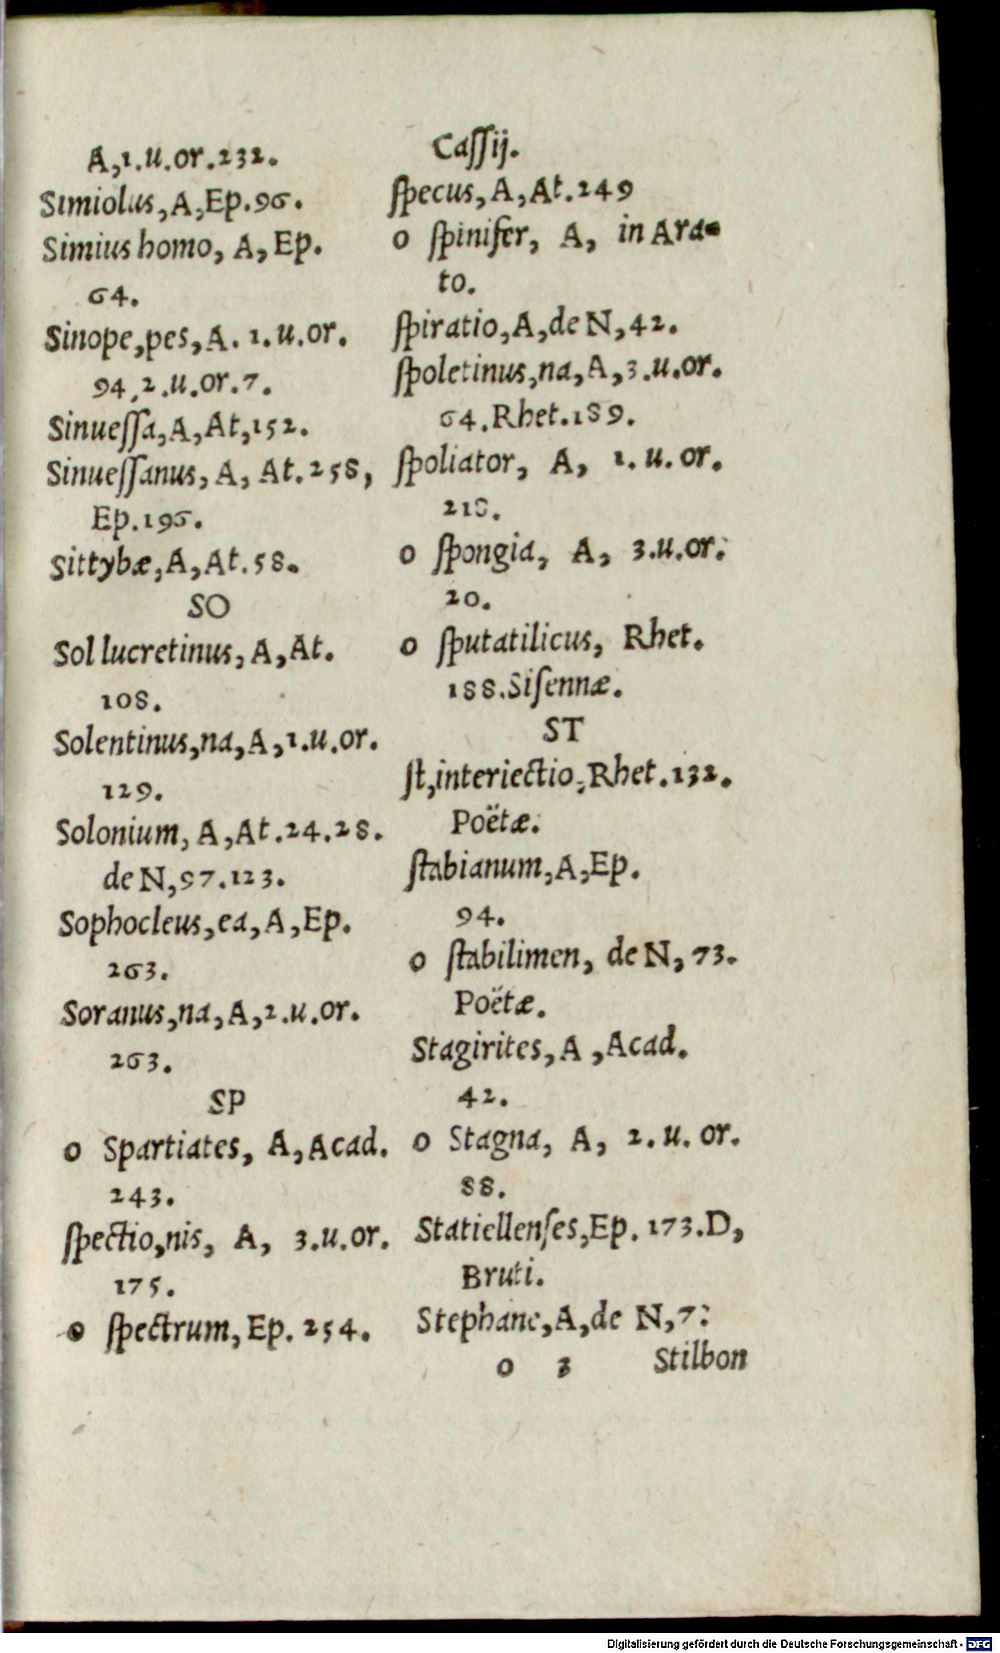 A,1.u.or.232.
Simiolus,A,Ep.96.
Simius homo, A, Ep.
64.
Sinope,pes,A. 1.u.or.
94,2.u.or.7.
Sinueſſa,A,At,152.
Sinueſſanus, A, At.258,
Ep.196.
Sittybæ,A,At.58.
SO
Sol lucretinus, A,At.
108.
Solentinus,na,A,1.u.or.
129.
Solonium, A,At.24.28.
de N,97.123.
Sophocleus,ea,A,Ep.
263.
Soranus,na,A,2.u.or.
263.
SP
o Spartiates, A,Acad.
243.
ſpectio,nis, A, 3.u.or.
175.
o ſpectrum, Ep. 254.
Caſſij.
ſpecus, A, At.249
o ſpinifer, A, in Ara-
to.
ſpiratio,A,de N,42.
ſpoletinus,na,A,3.u.or.
64.Rhet.189.
ſpoliator, A, 1.u.or.
218.
o ſpongia, A, 3.u.or.
20.
o ſputatilicus, Rhet.
188.Siſennæ.
ST
ſt,interiectio,Rhet.132.
Poëtæ.
ſtabianum,A,Ep.
94.
o ſtabilimen, de N, 73.
Poëtæ.
Stagirites, A ,Acad.
42.
o Stagna, A, 2.u.or.
88.
Statiellenſes,Ep.173.D,
Bruti.
Stephane,A,de N,7.
o 3 Stilbon
Digitalisierung gefördert durch die Deutsche Forschungsgemeinschaft - DFG